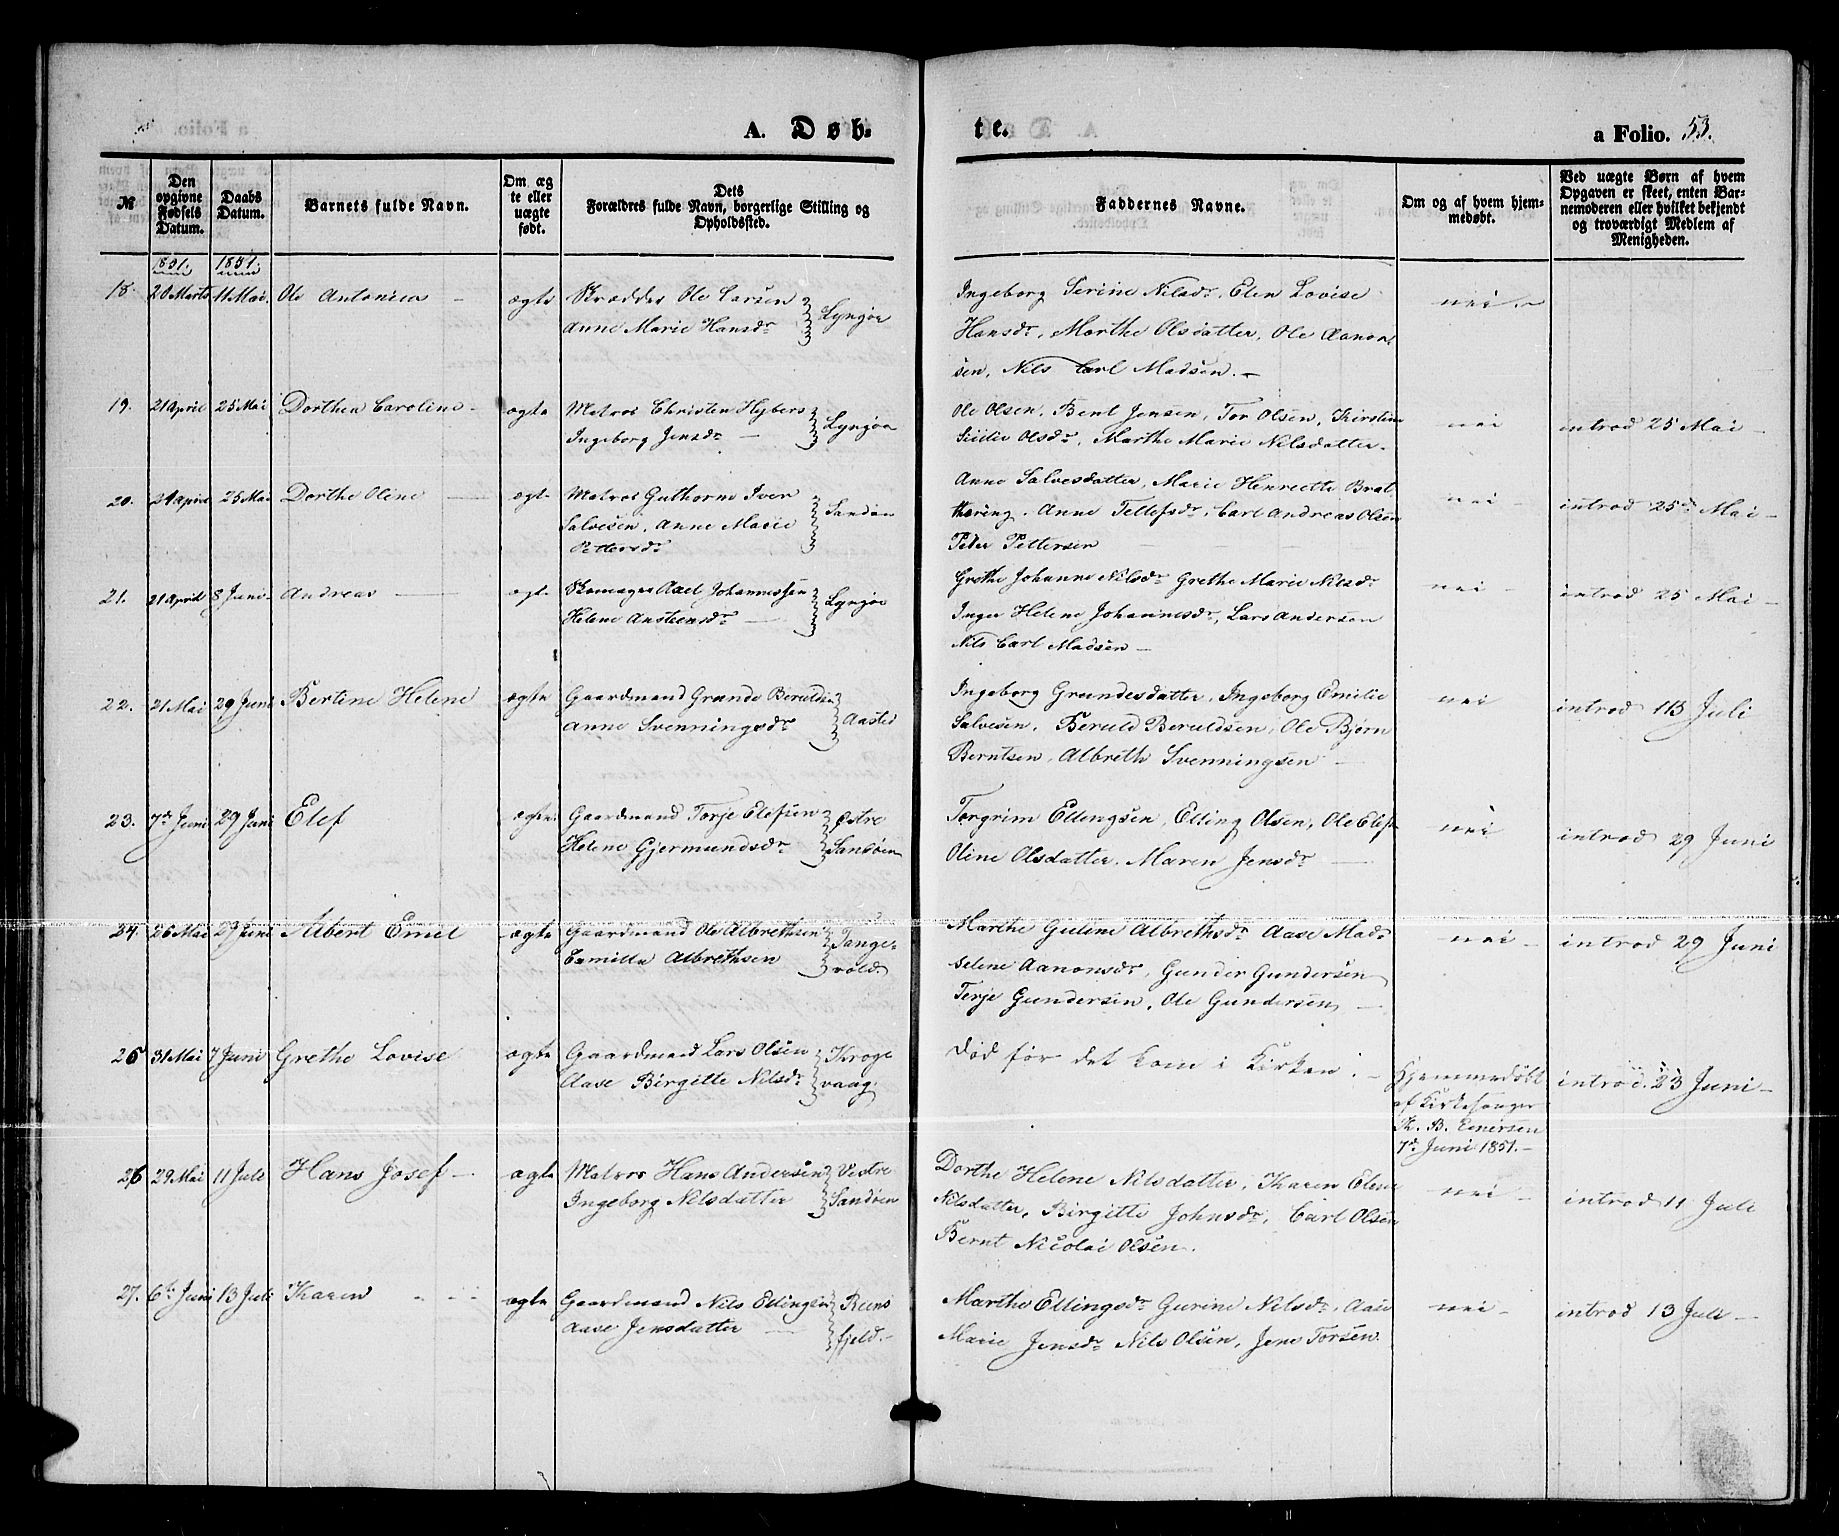 A. Døb-
te.
a Folio. 53.
№
Den opgivne Fødsels Datum.
Daabs Datum.
Barnets fulde Navn.
Om æg te eller uægte født.
Dets Forældres fulde Navn, borgerlige Stilling og Opholdssted.
Faddernes Navne.
Om og af hvem hjemmedøbt.
Ved uægte Børn af hvem Opgaven er skeet, enten Barnemoderen eller hvilket bekjendt og troværdigt Medlem af Menigheden.
1851. 1851.
18 20 Marts 11 Mai. Ole Antonius - ægte Skrædder Ole Larsen Lyngør Ingeborg Serine Nilsdr. Elen Lovise nei -
Anne Marie Hansdr Hansdr, Marthe Olsdatter, Ole Aanon
sen, Nils Carl Madsen. -
19. 21 April 25 Mai Dorthea Caroline - ægte Matros Christen Hybers Lyngør Ole Olsen, Bent Jensen, Tor Olsen, Kirstine nei introd 25 Mai -
Ingeborg Jensdr - Olsdr, Marthe Marie Nilsdatter.
20. 24 April 25 Mai Dorthe Oline ægte Matros Guthorm Iver Sandøen Anne Salvesdatter, Marie Henriette Brat nei - introd 25de Mai -
Salvesen, Anne Marie thering, Anne Tellefsdr, Carl Andreas Olsen
Pettersdr Peter Pettersen
21. 21 April 8 Juni - Andreas ægte Skomager Axel Johannessen Lyngør Grethe Johanne Nilsdr Grethe Marie Nilsdr nei - introd 25 Mai -
Helene Ansteensdr - Inger Helene Johannesdr, Lars Andersen
Nils Carl Madsen -
22. 21 Mai 29 Juni Bertine Helene ægte Gaardmand Grunde Beruldsen Aasted Ingeborg Grundesdatter, Ingeborg Emilie nei introd 13 Juli
Anne Svenningsdr Salvesen, Beruld Beruldsen, Ole Bjørn
Berntsen, Albreth Svenningsen -
23. 7de Juni 29 Juni Elef ægte Gaardmand Terje Elefsen Østre Torgrim Ellingsen, Elling Olsen, Ole Elefs nei introd 29 Juni
Helene Gjermundsdr Sandøen Oline Olsdatter, Maren Jensdr
24. 26 Mai 29 Juni Albert Emil ægte Gaardmand Ole Albrethsen Tange Marthe Guline Albrethsdr Aase Mad nei - introd 29 Juni
Camilla Albrethsen vold. selene Aanonsdr, Gunder Gundersen
Terje Gundersen, Ole Gundersen -
25 31 Mai 7 Juni Grethe Lovise ægte Gaardmand Lars Olsen Kroge Død før det kom i Kirken. - Hjemmedøbt introd. 23 Juni -
Aase Birgitte Nilsdr vaag. af Kirkesanger
K. B. Einersen
7de Juni 1851. -
26 29 Mai 11 Juli Hans Josef - ægte Matros Hans Andersen Vestre Dorthe Helene Nilsdatter, Karen Elene nei - introd 11 Juli
Ingeborg Nilsdatter Sandøen Nilsdatter, Birgitte Johnsdr, Carl Olsen
Bernt Nicolai Olsen.
27. 6te Juni 13 Juli Karen ægte Gaardmand Nils Ellingsen Reins Marthe Ellingsdr Gurine Nilsdr, Aase nei - introd 13 Juli -
Aase Jensdatter - fjeld. - Marie Jensdr Nils Olsen, Jens Torsen.